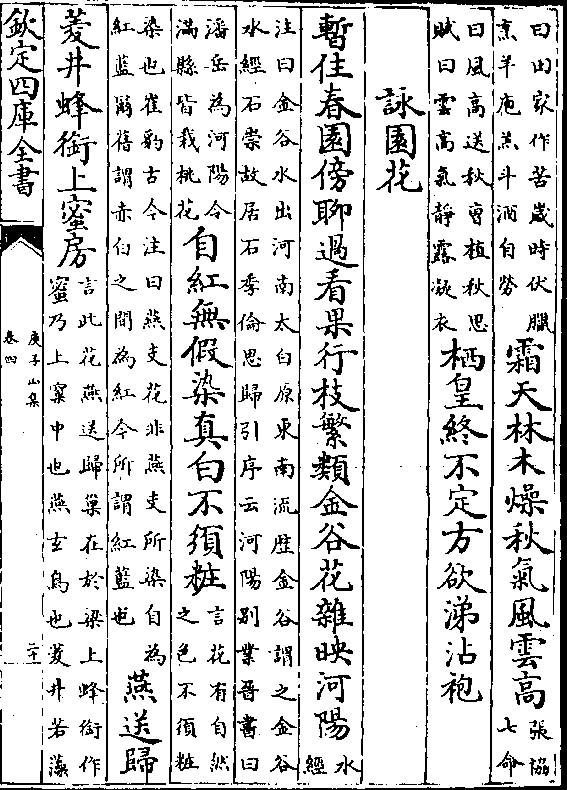 曰田家作苦嵗時伏臘
烹羊庖羔斗酒自勞
霜天林木燥秋氣風雲高
張協
七命
曰風高送秋曹植秋思
賦曰雲高氣靜露凝衣
栖皇終不定方欲涕沾袍
詠園花
暫往春園傍聊過看果行枝繁類金谷花雜映河陽
水
經
注曰金谷水出河南太白原東南流歴金谷謂之金谷
水經石崇故居石季倫思歸引序云河陽别業晉書曰
潘岳為河陽令
滿縣皆栽桃花
自紅無假染真白不須粧
言花有自然
之色不須粧
染也崔豹古今注曰燕支花非燕支所染自為
紅藍爾舊謂赤白之間為紅今所謂紅藍也
燕送歸
菱井蜂銜上蜜房
言此花燕送歸巢在於梁上蜂銜作
蜜乃上窠中也燕玄鳥也菱井若藻
欽定四庫全書
庾子山集
卷四